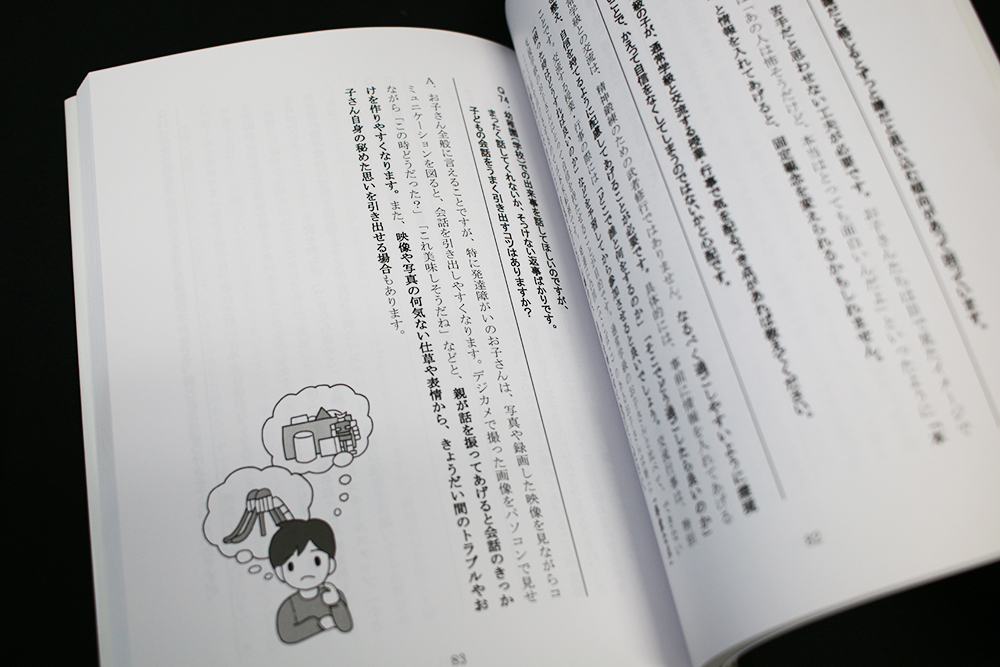 嫌だと感じるとずっと嫌だと思い込む傾向があって困っています。
苦手だと思わせない工夫が必要です。お子さんたちは目で見たイメージで
「あの人は怖そうだけど、本当はとっても面白いんだよ」といったように一案
と情報を入れてあげると、固定観念を変えられるかもしれません。
級の子が、通常学級と交流する授業・行事で気を配るべき点があれば教えてください。
ことで、かえって自信をなくしてしまうのではないかと心配です。
学級との交流は、精神鍛練のための武者修行ではありません。なるべく過ごしやすいように環境
え、自信を持てるように配慮してあげることが必要です。具体的には、事前に情報を入れてあげる
62
Q74・幼稚園(学校)での出来事を話してほしいのですが、
まったく話してくれないか、そっけない返事ばかりです。
子どもの会話をうまく引き出すコツはありますか?
A・お子さん全般に言えることですが、特に発達障がいのお子さんは、写真や録画した映像を見ながらコ
ミュニケーションを図ると、会話を引き出しやすくなります。デジカメで撮った画像をパソコンで見せ
ながら「この時どうだった?」「これ美味しそうだね」などと、親が話を振ってあげると会話のきっか
けを作りやすくなります。また、映像や写真の何気ない仕草や表情から、きょうだい間のトラブルやお
子さん自身の秘めた思いを引き出せる場合もあります。
63